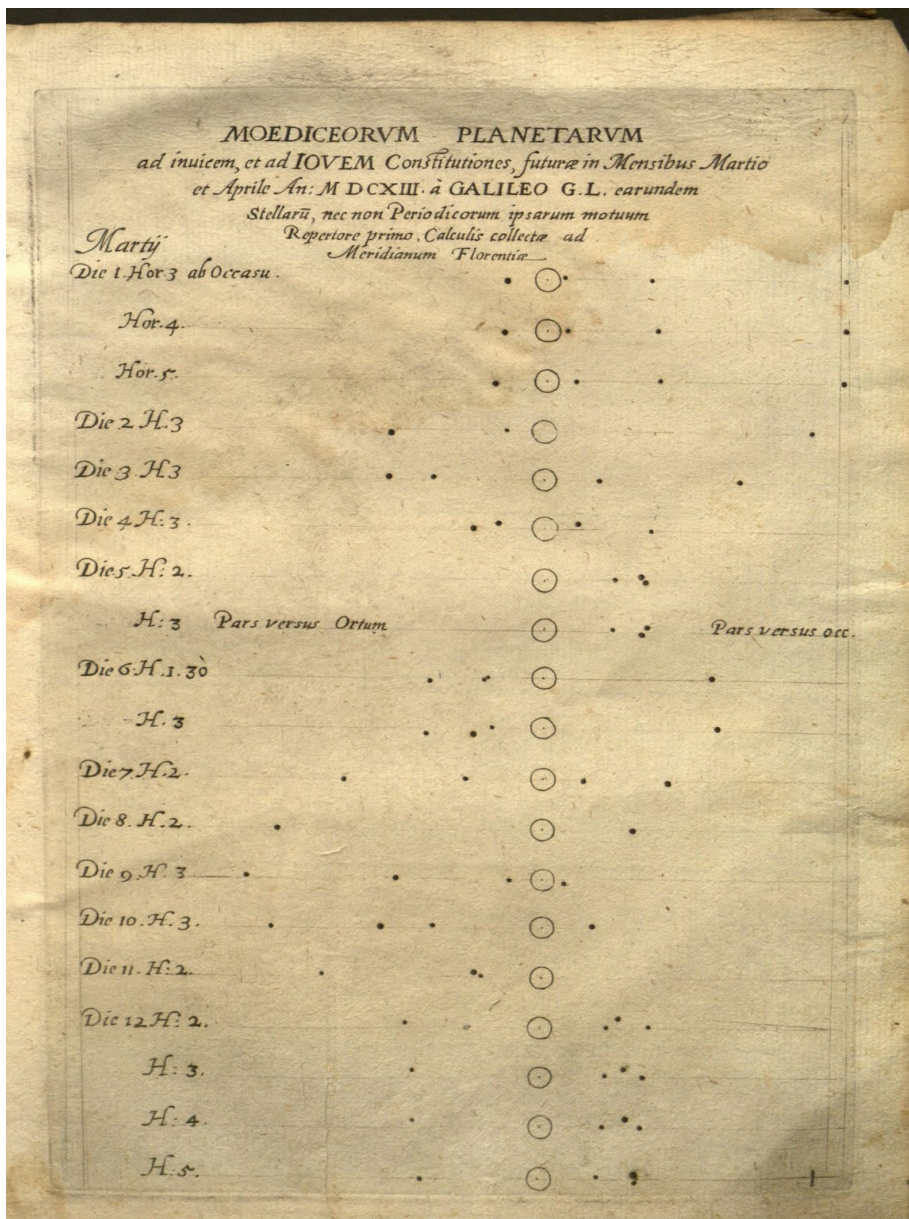 MOEDICEORVM PLANETARVM
ad inuicem, et ad IOVEM Constitutiones, futuræ in Mensibus Martio
et Aprile An: M DCXIII. à GALILEO G.L. earundem
Stellarū, nec non Periodicorum ipsarum motuum
Repertore primo, Calculis collectæ ad
Meridianum Florentiæ
Martij
Die 1. Hor. 3 ab Occasu.
Hor. 4.
Hor. 5.
Die 2. H. 3
Die 3. H. 3
Die 4. H: 3.
Die 5. H: 2.
H: 3 Pars versus Ortum Pars versus occ.
Die 6. H. 1. 30
H. 3
Die 7. H. 2.
Die 8. H. 2.
Die 9. H. 3
Die 10. H. 3.
Die 11. H: 2.
Die 12 H: 2.
H: 3.
H: 4.
H: 5.
1